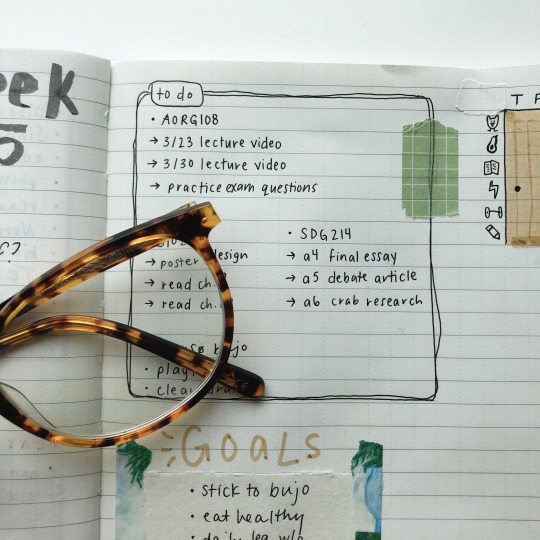 5
to do
• AORG108
→ 3/23 lecture video
→ 3/30 lecture video
→ practice exam questions
→ poster design
→ read ch.
→ read ch.
bujo
•
• SDG214
→ a4 final essay
→ a5 debate article
→ a6 crab research
T
GOALS
• stick to bujo
• eat healthy
• daily leg w/o